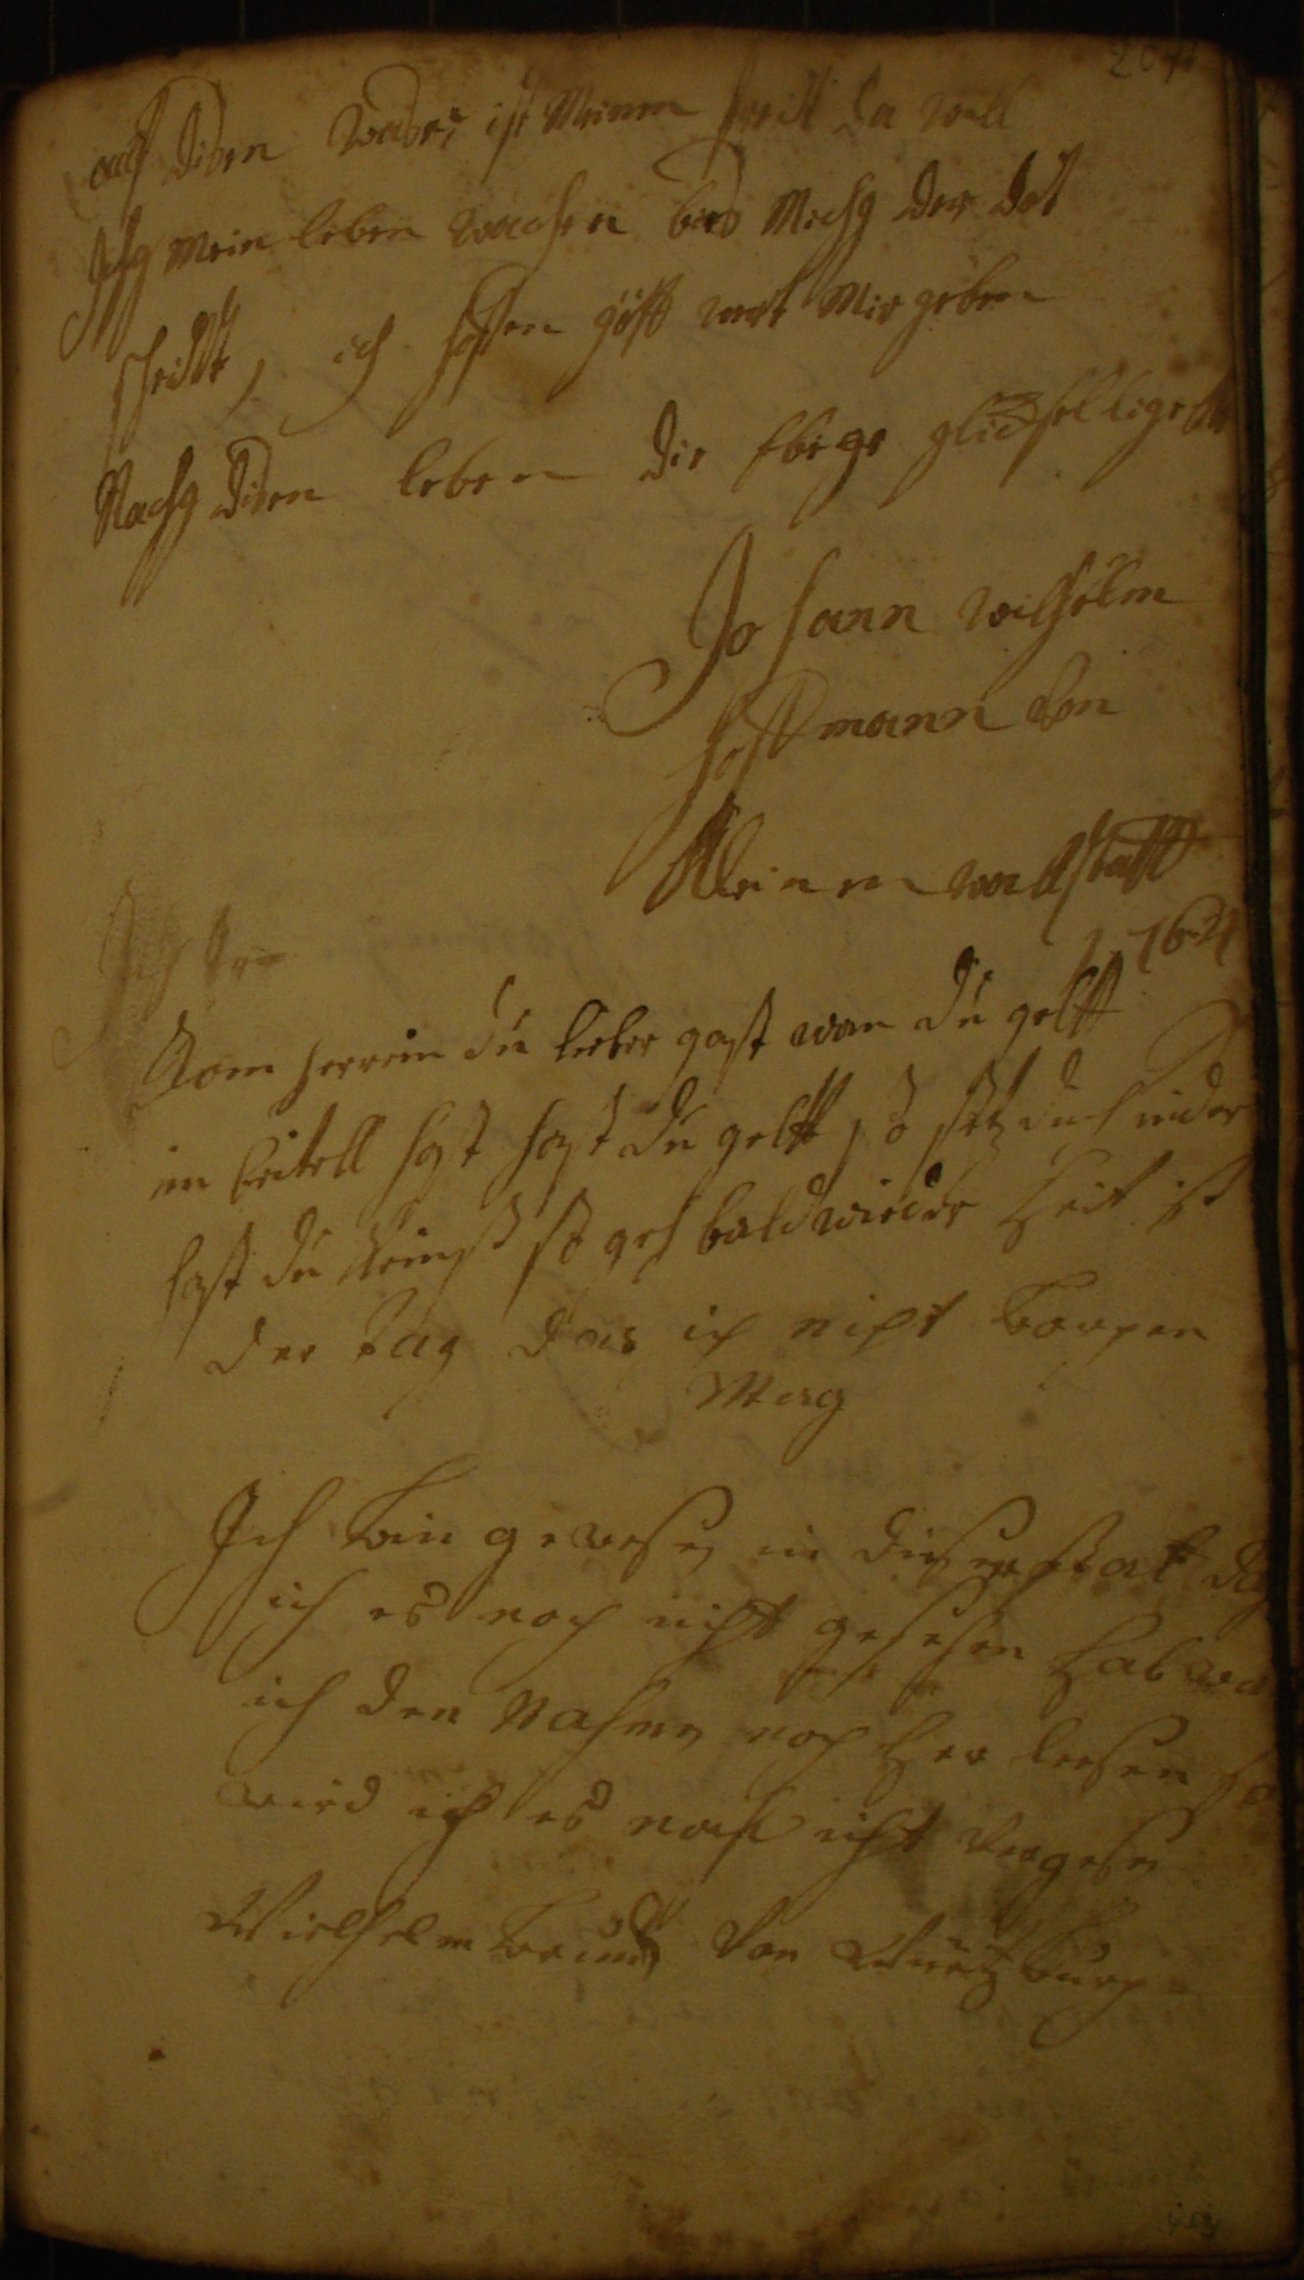 auff disen waßer ist Meinen freitt da will
Ichg mein leben wachsen bis Michg der dot
scheidtt, ich hoffen gott wert mir geben
Nachg disen leben die Ebige glickselligeitt
Johann wilhelm
hoffmann von
Kleinen wallstatt
Ich
Kom herrein du lieber gast wan du geltt
im beitell hast hast du geltt so setz dich nider
hast du Keinß so geh bald wieder Heit ist
der tag das ich nicht borgen
Mag
Ich bin gewesen in dieser stat das
ich es noch nicht gesehen hab
ich den Nahmen noch her lesen
wird ich es noch nicht vergesen
Wielhelm von Würtzburg